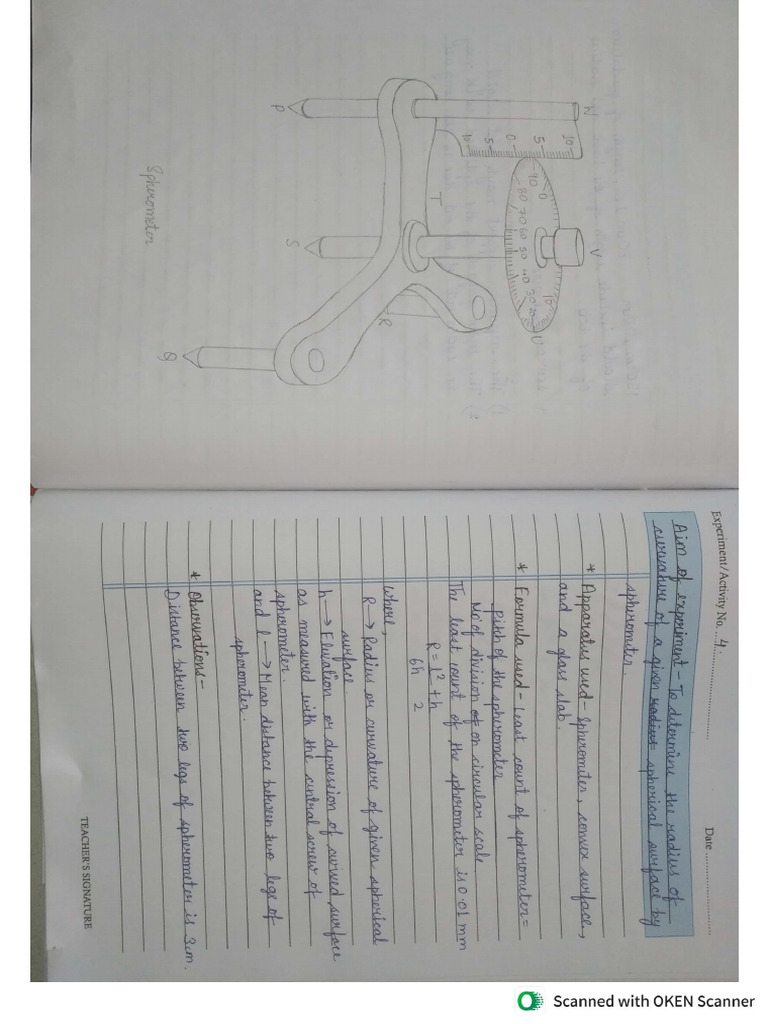 W
10
5
0
5
10
V
0
90
80
70
60
50
40
30
20
10
U
T
P
S
R
Q
Spherometer
Experiment/Activity No. ... 4.
Date
Aim of experiment - To determine the radius of
curvature of a given radius spherical surface by
spherometer.
* Apparatus used - Spherometer, convex surface,
and a glass slab.
* Formula used - Least count of spherometer =
Pitch of the spherometer
No of division of on circular scale
The least count of the spherometer is 0.01 mm
R = l² + h
6h 2
Where,
R → Radius or curvature of given spherical
surface
h → Elvation or depression of curved surface
as measured with the central screw of
spherometer.
and l → Mean distance between two legs of
spherometer.
* Observations -
Distance between two legs of spherometer is 3cm.
TEACHER'S SIGNATURE
Scanned with OKEN Scanner